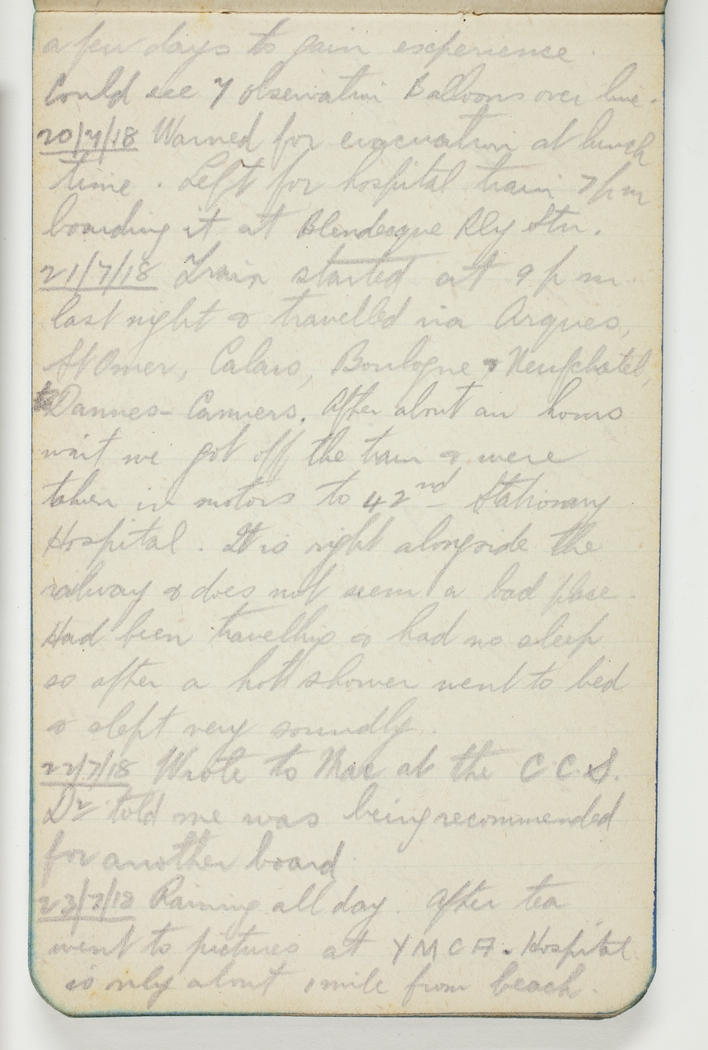 a few days to gain experience.
Could see 7 observation Balloons over line.
20/7/18 Warned for evacuation at lunch
time. Left for hospital train 7 pm
boarding it at Blendesque Rly Stn.
21/7/18 Train started at 9 p m.
last night & travelled via Arques,
St Omer, Calais, Boulogne & Neufchatel,
to Dannes-Camiers. After about an hours
wait we got off the train & were
taken in motors to 42nd Stationary
Hospital. It is right alongside the
railway & does not seem a bad place.
Had been travelling & had no sleep
so after a hot shower went to bed
& slept very soundly.
22/7/18 Wrote to Mac at the C C S.
Dr told me was being recommended
for another board
23/7/18 Raining all day. After tea
went to pictures at YMCA. Hospital
is only about 1 mile from beach.